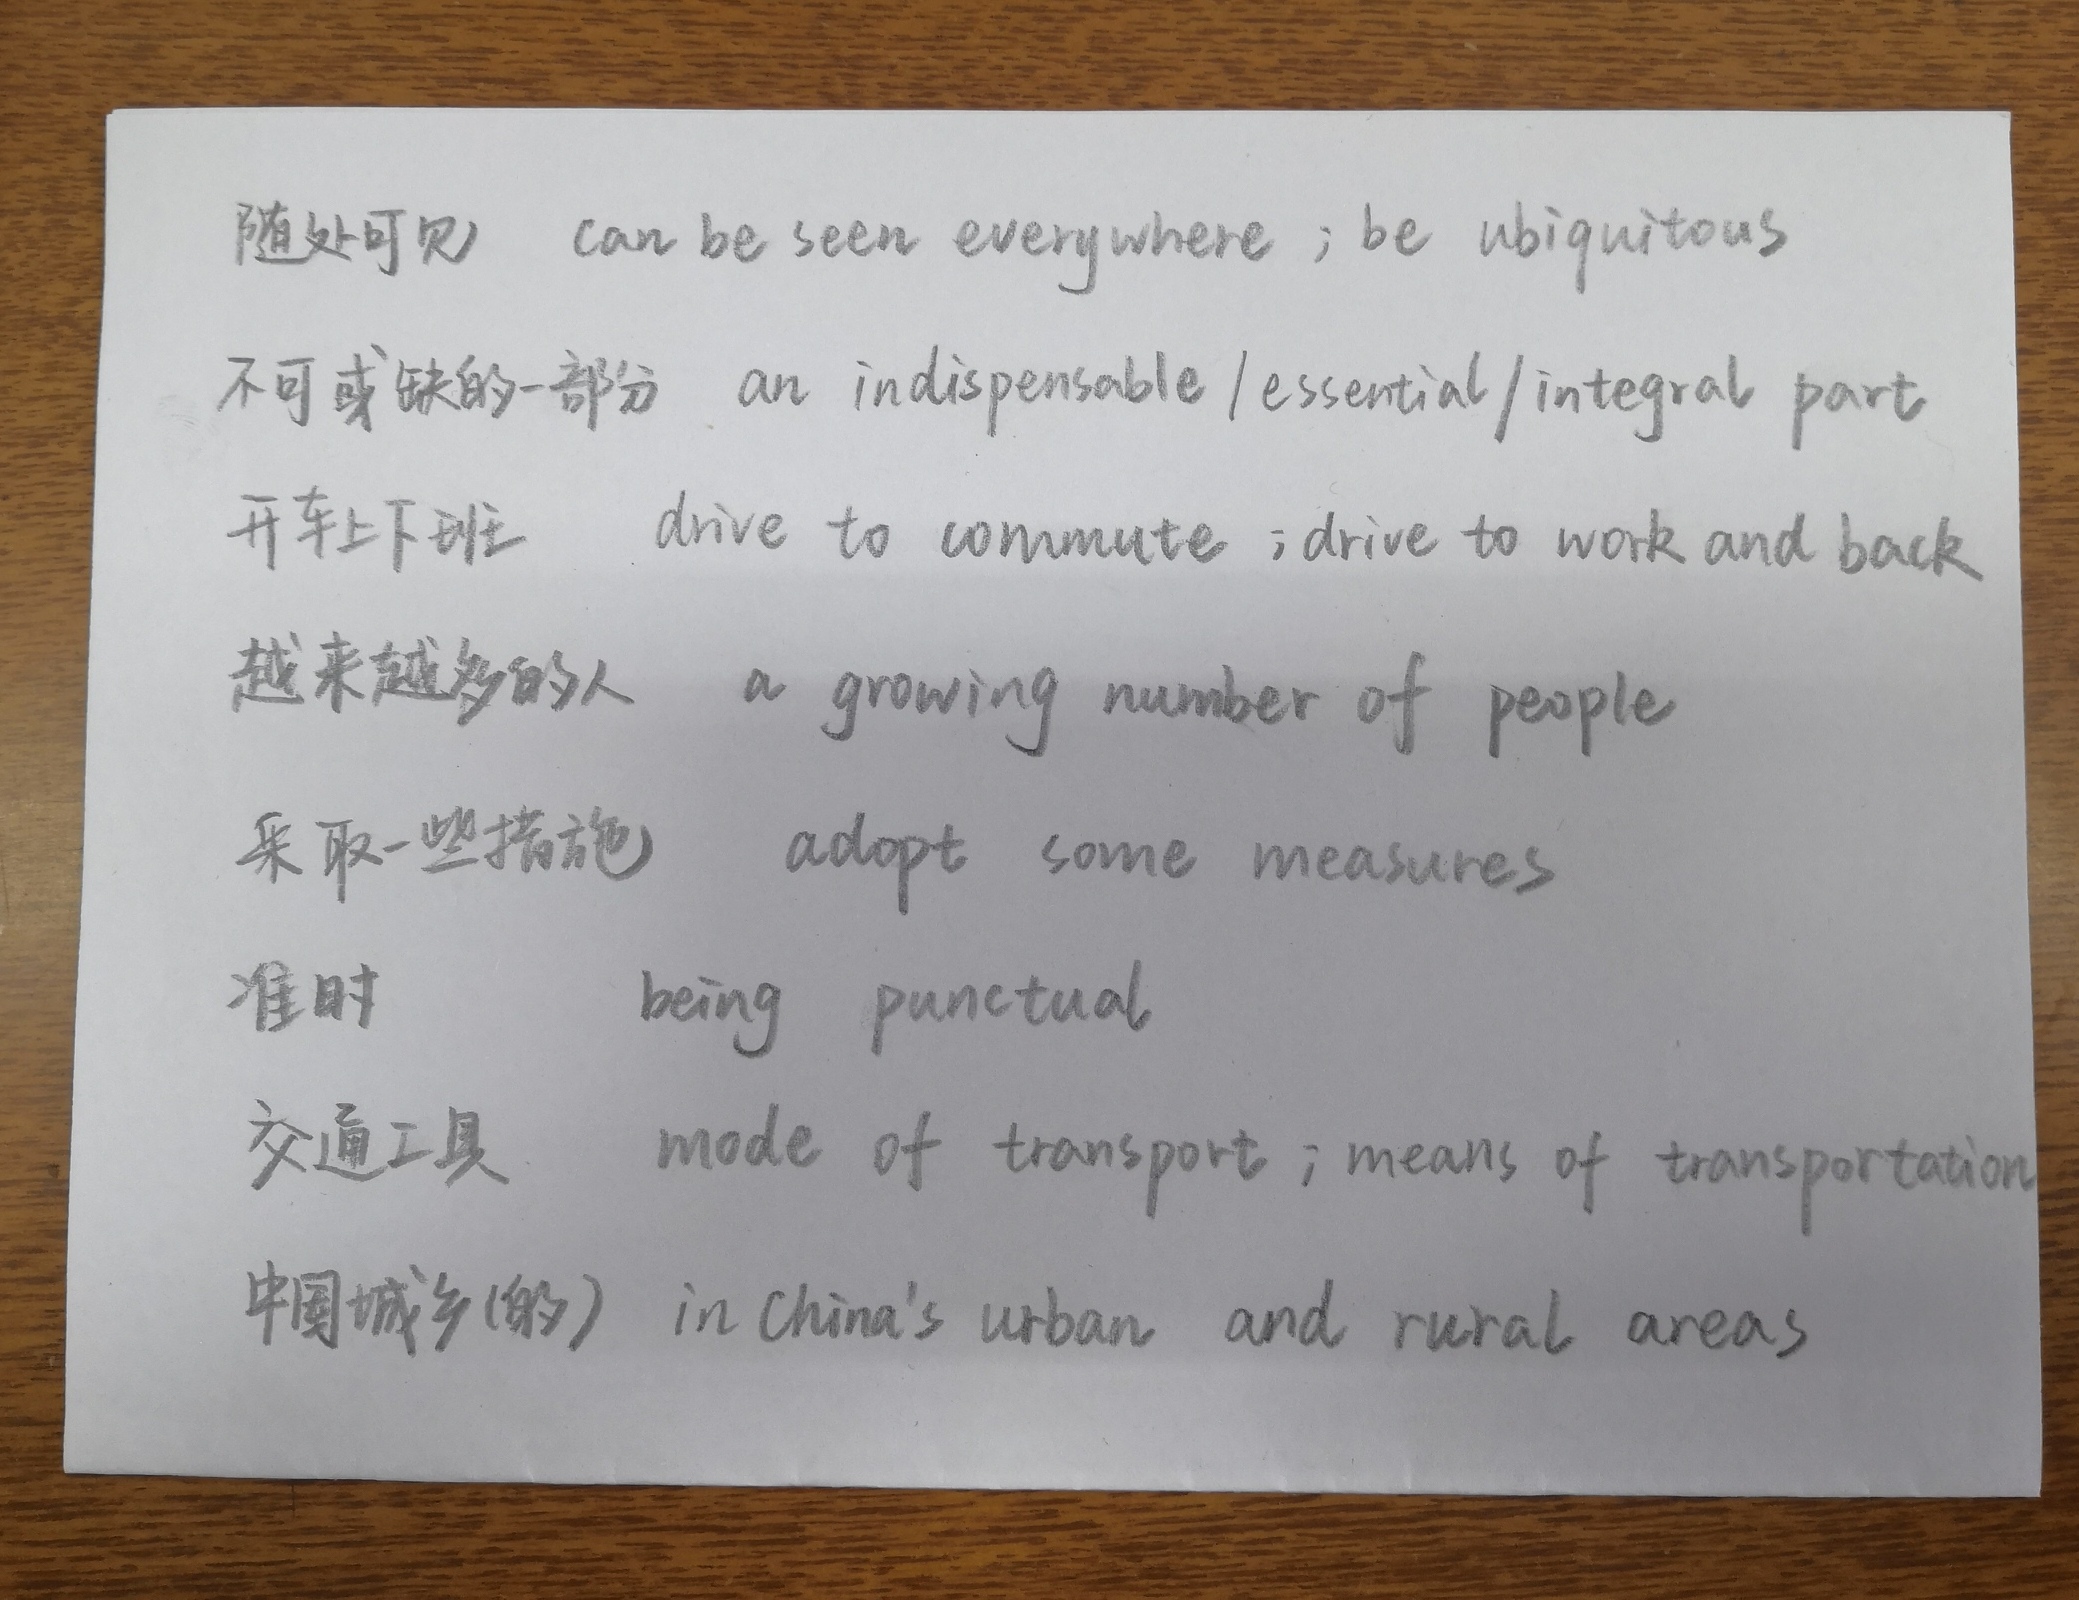 随处可见 can be seen everywhere ; be ubiquitous
不可或缺的一部分 an indispensable / essential / integral part
开车上下班 drive to commute ; drive to work and back
越来越多的人 a growing number of people
采取一些措施 adopt some measures
准时 being punctual
交通工具 mode of transport ; means of transportation
中国城乡(的) in China's urban and rural areas